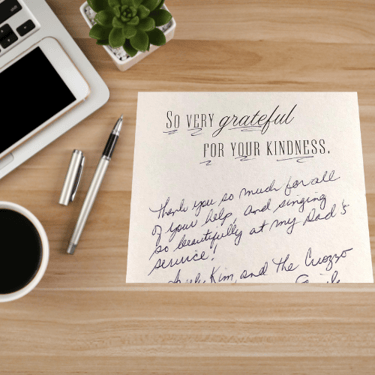 So very grateful
for your kindness.
Thank you so much for all
of your help, and singing
so beautifully at my Dad's
service!
Kim and The Cuozzo